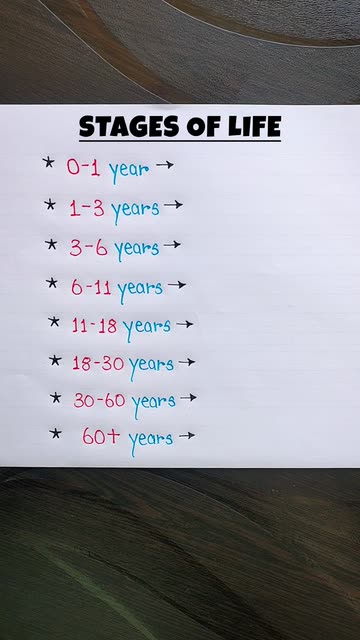 STAGES OF LIFE
* 0-1 year →
* 1-3 years →
* 3-6 years →
* 6-11 years →
* 11-18 years →
* 18-30 years →
* 30-60 years →
* 60+ years →